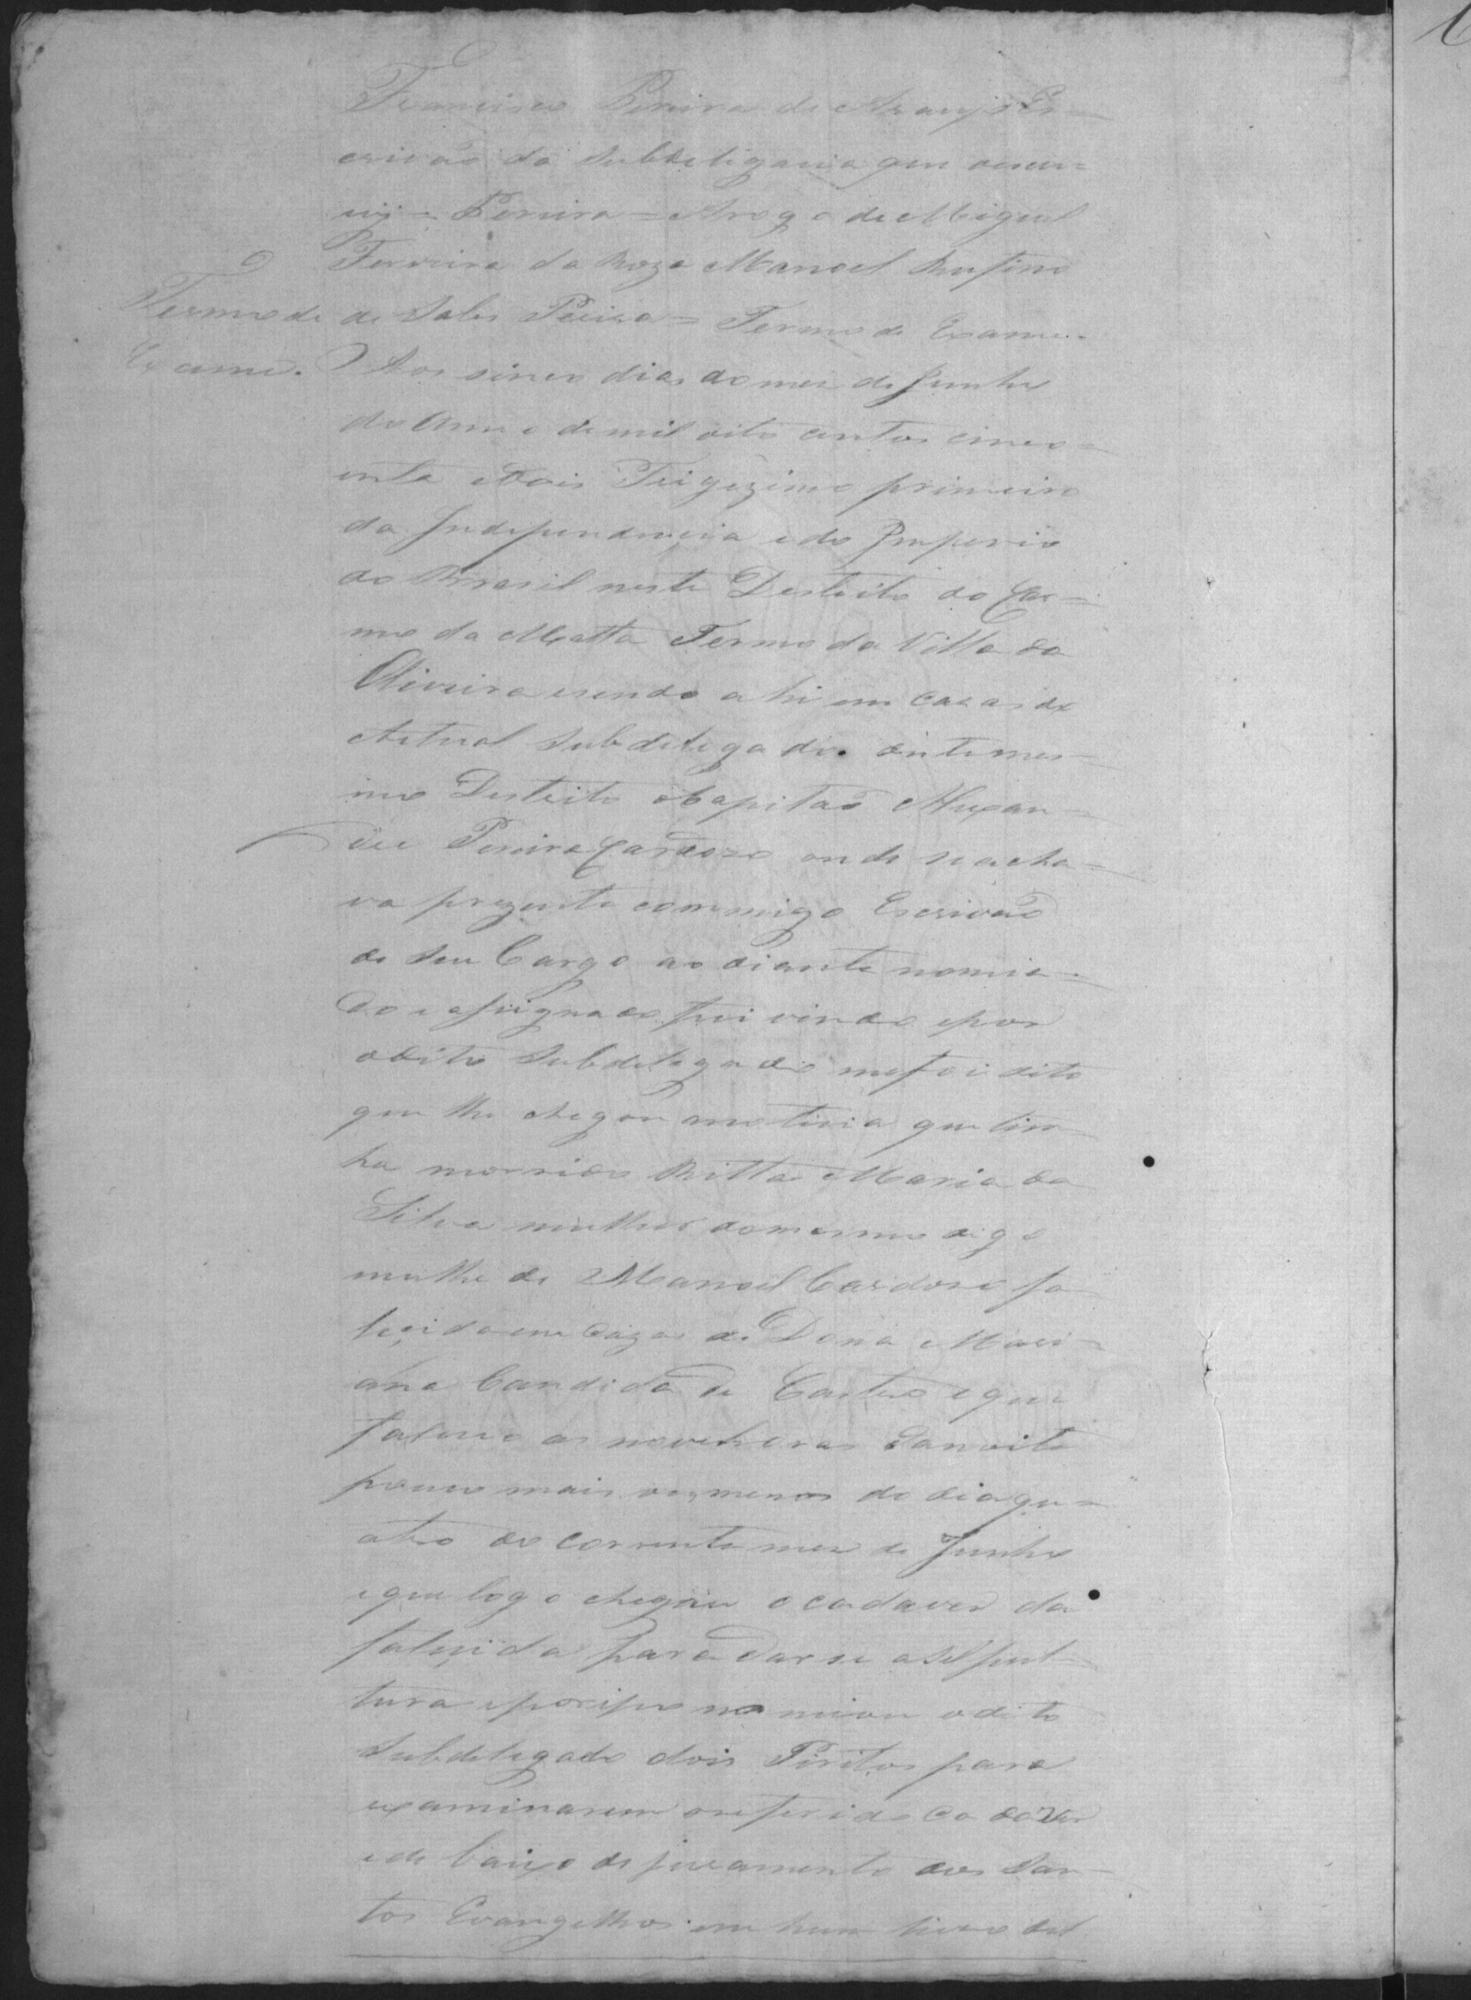 Francisco Pereira de Araujo Es-
crivão da Subdeligacia que escre-
vij = Pereira = Arogo de Miguel
Ferreira da Roza Manoel Rufino
Termo de
Exame.
de Sales Pereira = Termo de Exame.
Aos sinco dias do mes de Junho
do Anno de mil oito centos cinco-
enta edois Trigezimo primeiro
da Independencia e do Imperio
do Brasil neste Destrito do Car-
mo da Matta Termo da Villa da
Oliveira esendo ahi em casas do
Actual Subdelegado deste mes-
mo Destrito o Capitaõ Alexan-
dre Pereira Cardozo onde se acha-
va prezente commigo Escrivaõ
de Seu Cargo ao diante nomia-
do e assignado foi vindo e por
o dito Subdelegado me foi dito
que lhe chegou anoticia que tin-
ha morrido Ritta Maria da
Silva mulher do mesmo digo
mulhe de Manoel Cardoso fa
leçida em Caza de Dona Mari-
ana Candida de Castro e que
faleceo as nove horas da noite
pouco mais ou menos do dia qu-
atro do corrente mes de Junho
e que logo chegou o cadaver da
faleçida para dar se a Selpul-
tura e por isso nomiou o dito
Subdelegado dois Piritos para
examinarem o referido Cadaver
e de baixo de juramento dos San-
tos Evangelhos em hum livro del